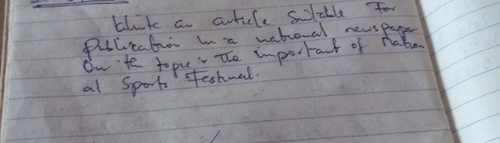 Write an article suitable for
publication in a national newspaper
On the topic: The important of Nation
al Sports Festival.